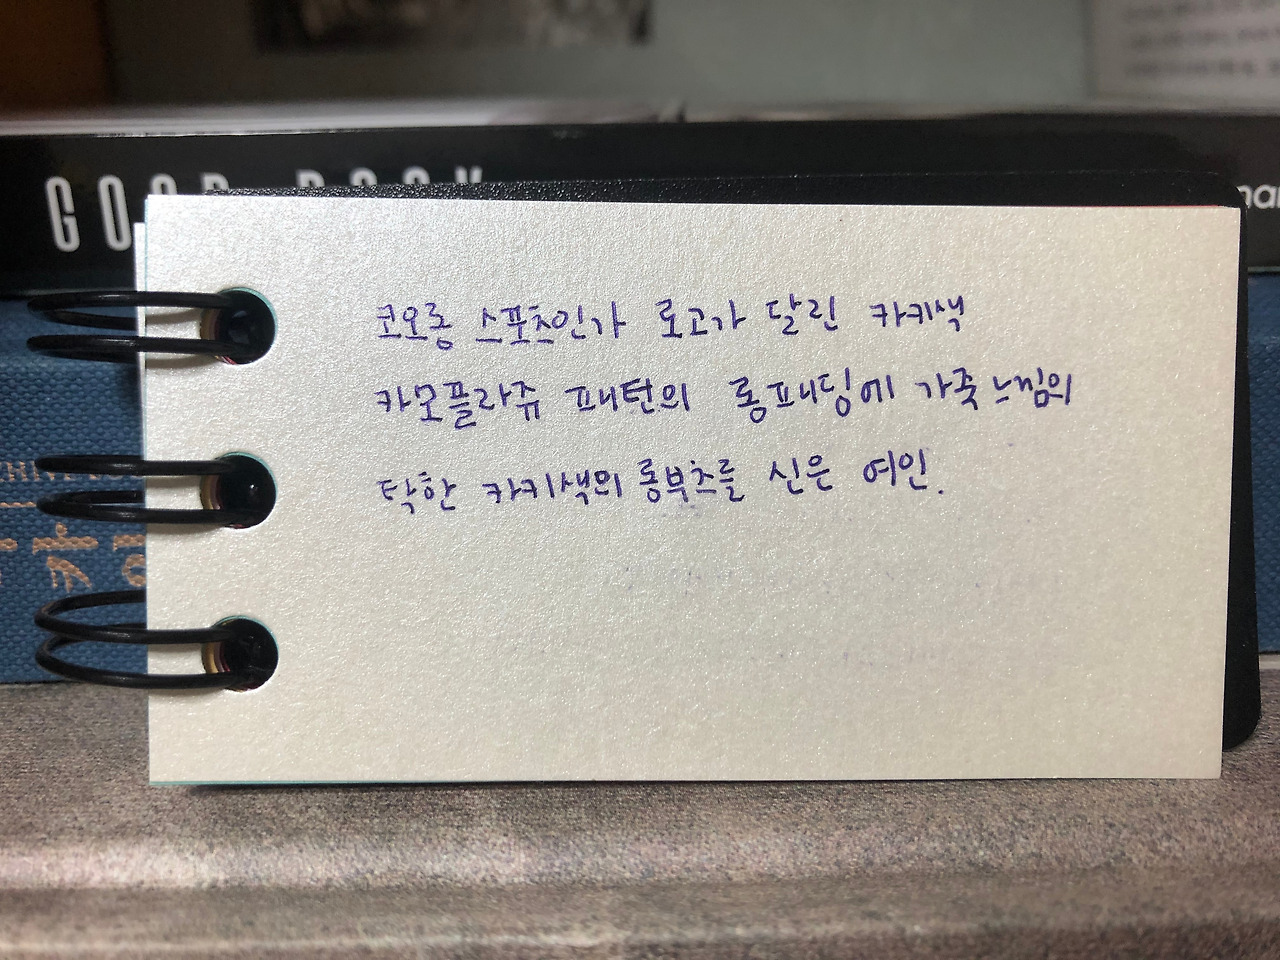 GOOD BOOK
코오롱 스포츠인가 로고가 달린 카키색
카모플라쥬 패턴의 롱패딩에 가죽느낌의
탁한 카키색의 롱부츠를 신은 여인.